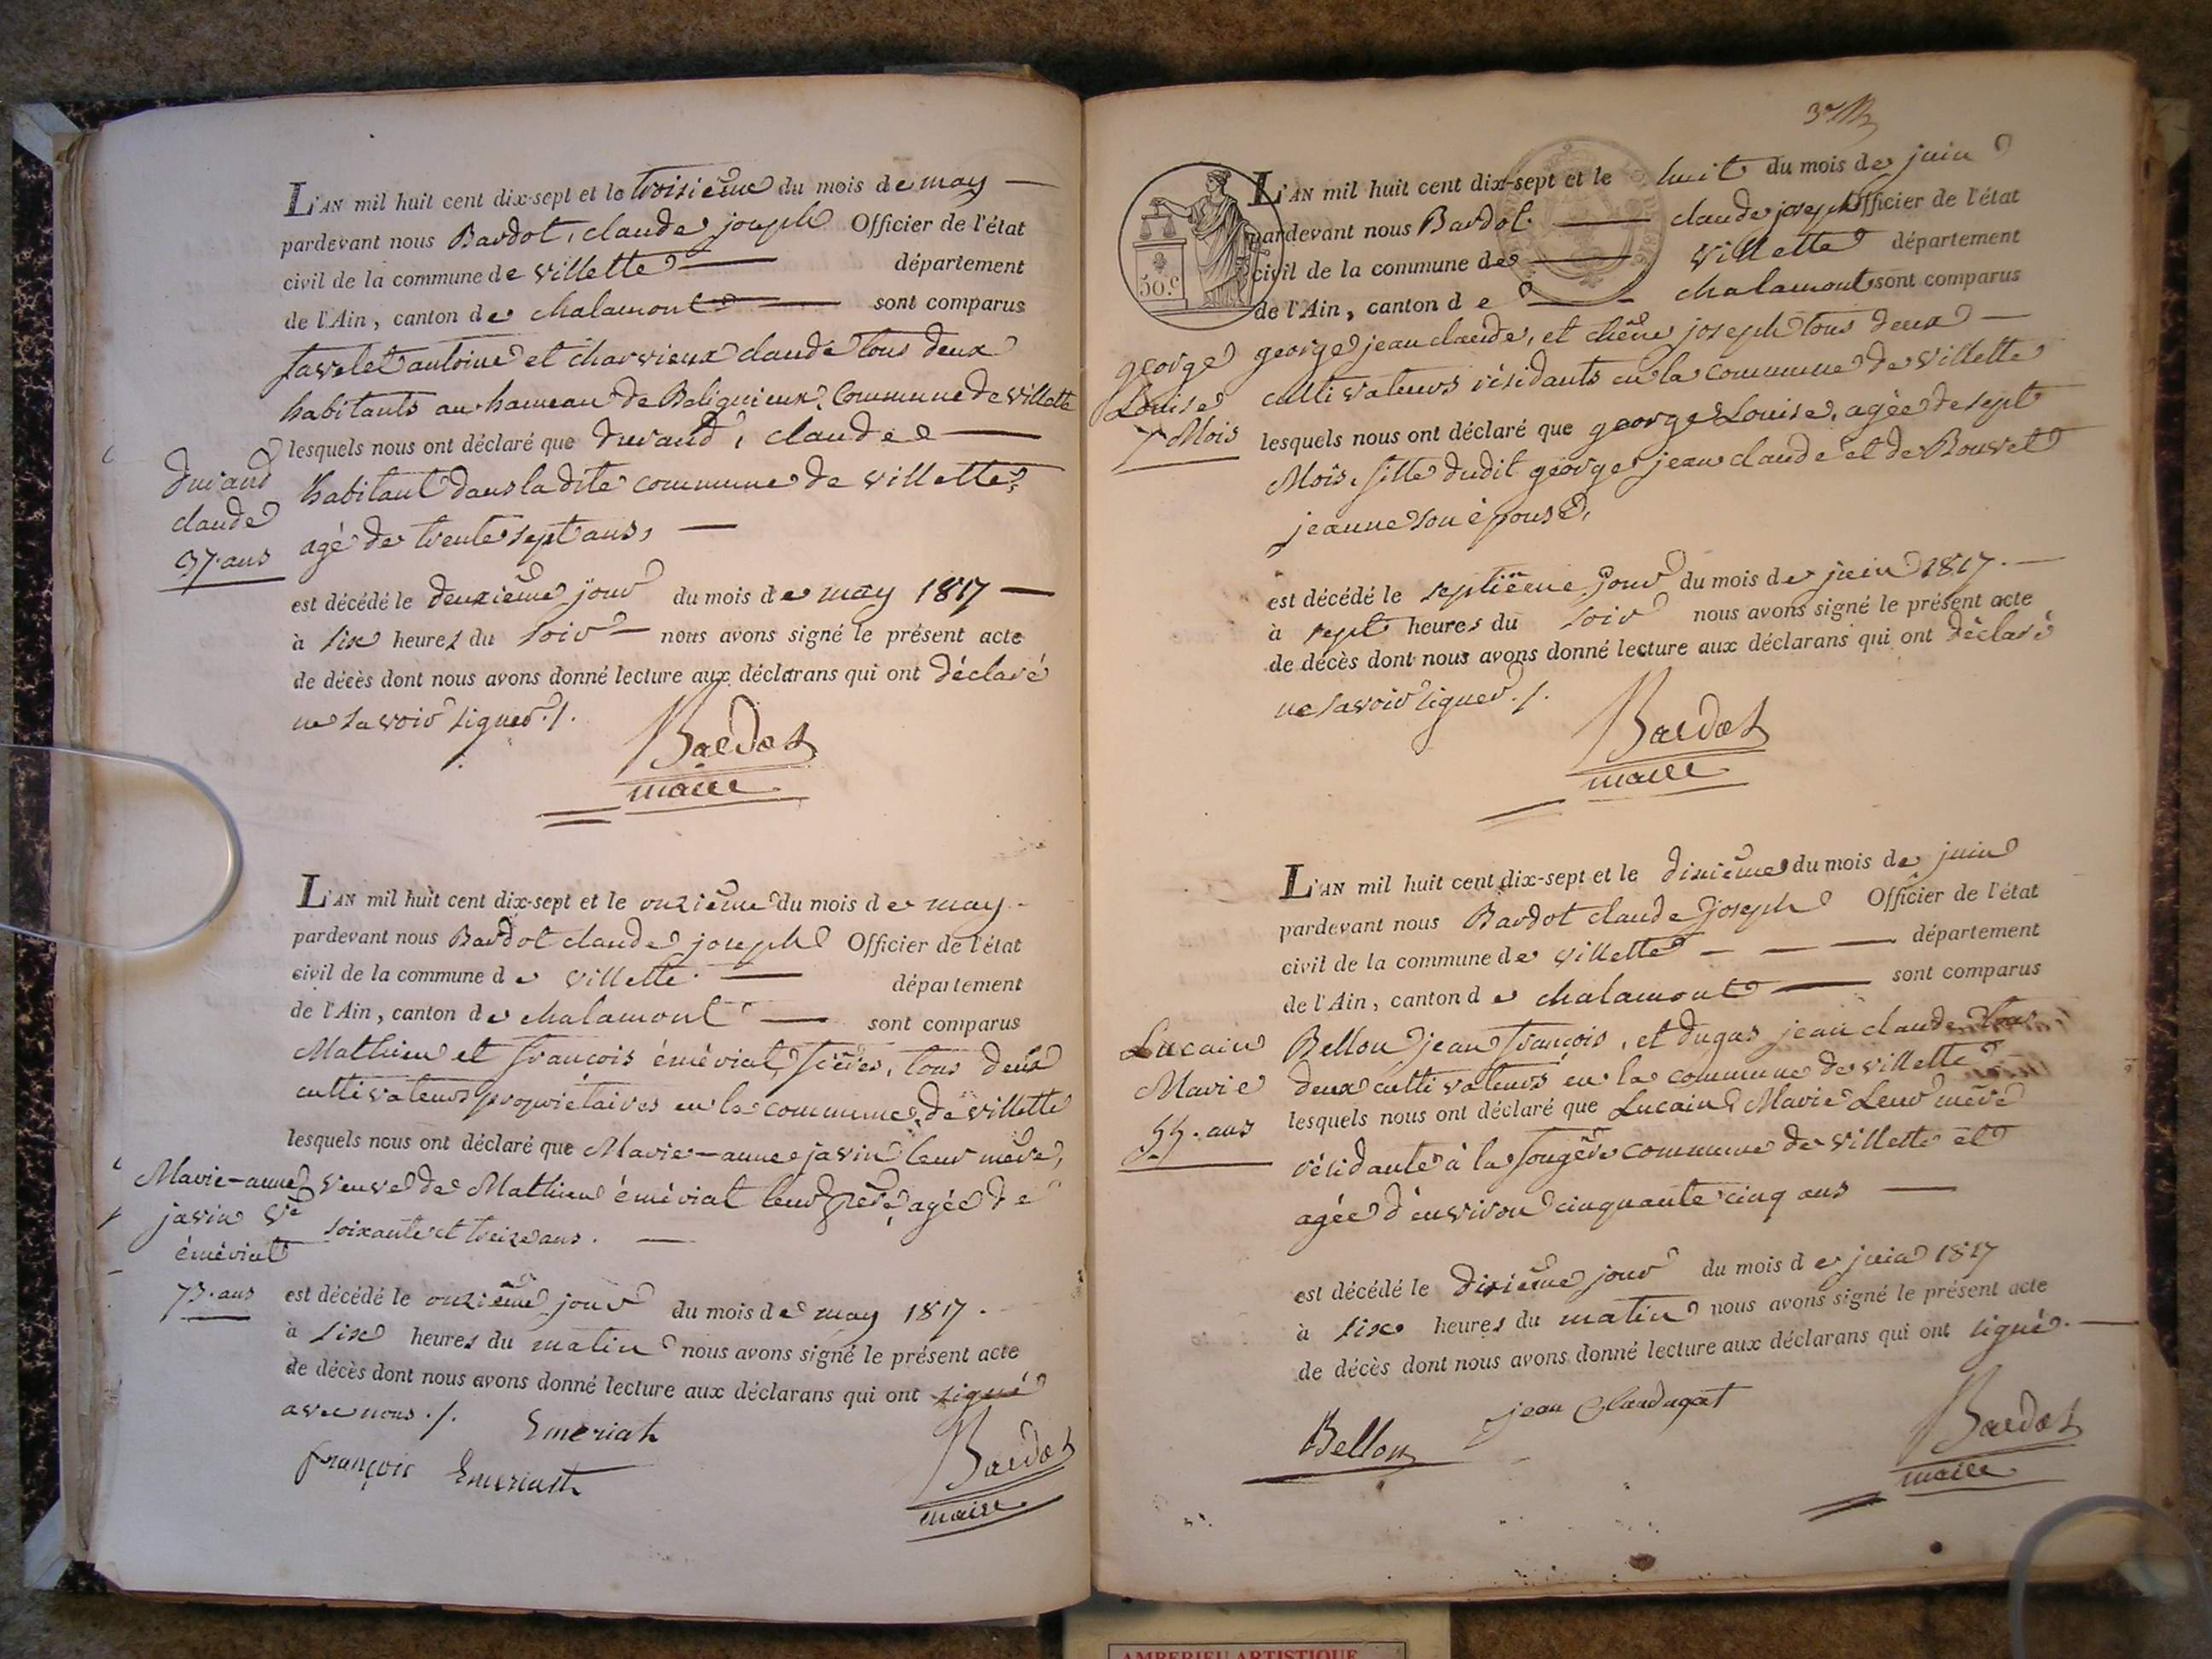 L'AN mil huit cent dix-sept et le troisième du mois de may
pardevant nous Bardot, claude joseph Officier de l'état
civil de la commune de villette département
de l'Ain, canton de chalamont sont comparus
favelet antoine et charvieux claude tous deux
habitants au hameau de Baligneux, Commune de villette
lesquels nous ont déclaré que durand, claude
Durand
claude
37 ans
habitant dans la dite commune de villette,
agé de trente sept ans,
est décédé le deuxième jour du mois de may 1817
à six heures du soir nous avons signé le présent acte
de décès dont nous avons donné lecture aux déclarans qui ont déclaré
ne savoir signer ./.
Bardot
maire
L'AN mil huit cent dix-sept et le onzième du mois de may
pardevant nous Bardot claude joseph Officier de l'état
civil de la commune de villette département
de l'Ain, canton de chalamont sont comparus
Mathieu et françois émériat, frères, tous deux
cultivateurs propriétaires en la commune de villette
lesquels nous ont déclaré que Marie-anne javin leur mère,
Marie-anne
javin Ve
émériat
73. ans
veuve de Mathieu émériat leur père, agée de
soixante et treize ans.
est décédé le onzième jour du mois de may 1817.
à six heures du matin nous avons signé le présent acte
de décès dont nous avons donné lecture aux déclarans qui ont signé
avec nous ./.
Emeriat
françois Emeriat
Bardot
maire
L'AN mil huit cent dix-sept et le huit du mois de juin
pardevant nous Bardot claude joseph Officier de l'état
civil de la commune de villette département
de l'Ain, canton de chalamont sont comparus
50.c
george
Louise
7 Mois
george jean claude, et chêne joseph tous deux
cultivateurs résidants en la commune de villette
lesquels nous ont déclaré que george Louise, agée de sept
Mois, fille dudit george jean claude et de Bouvet
jeanne son épouse,
est décédé le septième jour du mois de juin 1817.
à sept heures du soir nous avons signé le présent acte
de décès dont nous avons donné lecture aux déclarans qui ont déclaré
ne savoir signer ./.
Bardot
maire
L'AN mil huit cent dix-sept et le dixième du mois de juin
pardevant nous Bardot claude Joseph Officier de l'état
civil de la commune de villette département
de l'Ain, canton de chalamont sont comparus
Lucain
Marie
55. ans
Bellon jean françois, et dugas jean claude tous
deux cultivateurs en la commune de villette
lesquels nous ont déclaré que Lucain Marie Leur mère
résidante à la fougère commune de villette et
agée d'environ cinquante cinq ans
est décédé le dixième jour du mois de juin 1817
à six heures du matin nous avons signé le présent acte
de décès dont nous avons donné lecture aux déclarans qui ont signé.
Bellon
jean Claudugat
Bardot
maire
AMBERIEU ARTISTIQUE